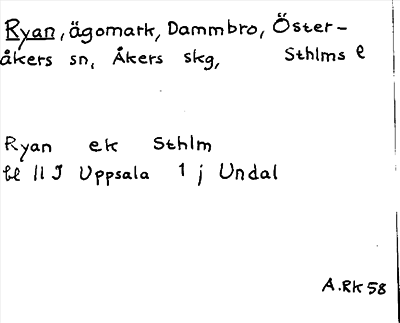 Ryan, ägomark, Dammbro, Öster-
åkers sn, Åkers skg, Sthlms l
Ryan ek Sthlm
bl 11 J Uppsala 1 j Undal
A.Rk 58